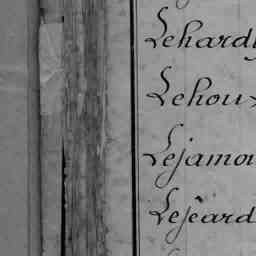 Lehardy
Lehoux
Lejamo
Lejeard